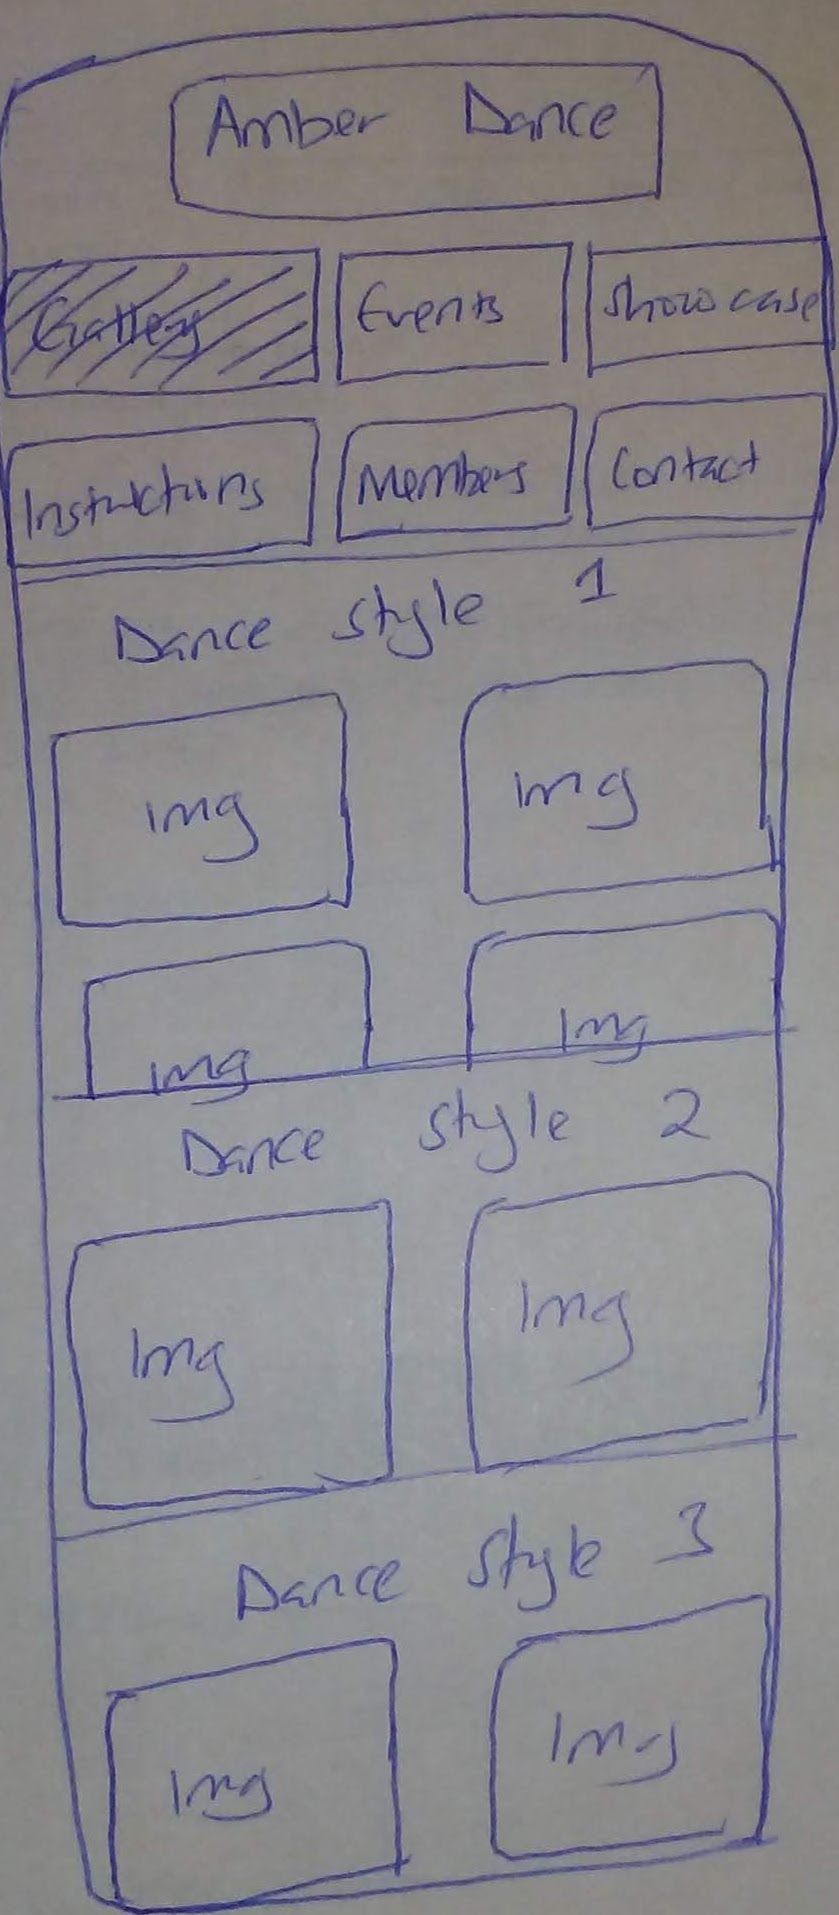 Amber Dance
Gallery Events Showcase
Instructions Members Contact
Dance style 1
img img
img img
Dance style 2
Img Img
Dance style 3
Img Img